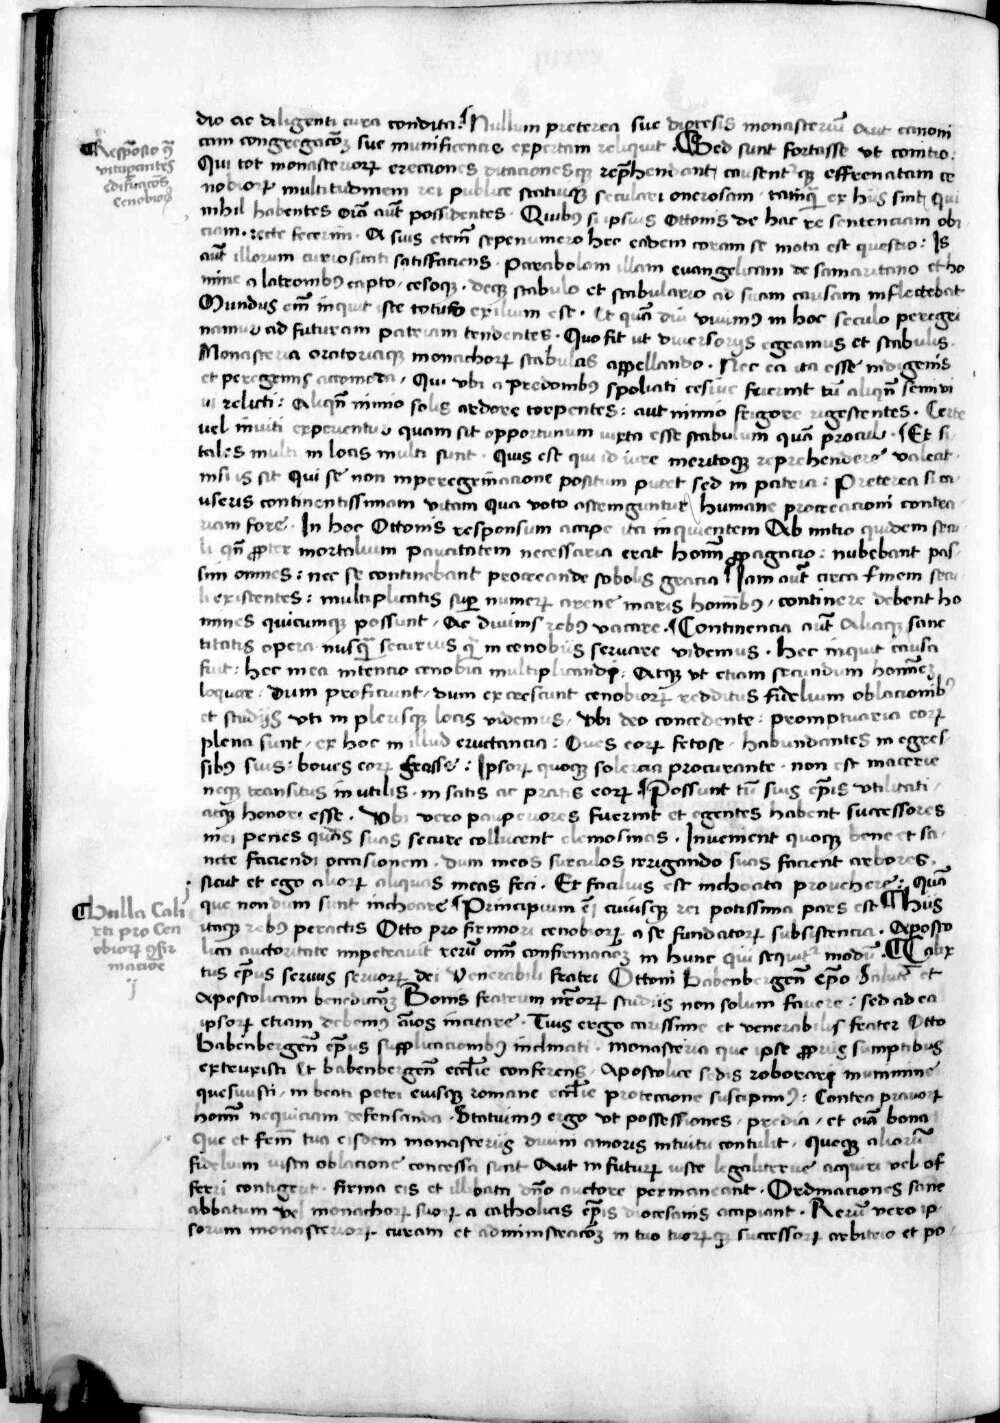 dio ac diligenti cura condita. Nullum preterea sue diocesis monasteriū aut canoni
cam congregacōꝫ sue munificencie expertam reliquit. Sed sunt fortasse vt comitio:
Responsio ꝯtra
vitupantes
edificacōes
cenobioꝝ
Qui tot monasterioꝝ erecciones ditacionesqꝫ rep̄hendant, causent qꝫ effrenatam ce
nobioꝝ multitudinem rei publice statuiqꝫ seculari onerosam, tamqͣ ex hijs sint, qui
nihil habentes oīa aut̄ possidentes. Quibꝰ si ipsius Ottonis de hac re sentenciam obi
ciam, recte fecerim. A suis etem̄ sepenumero hec eadem coram se mota est questio: Is
aut̄ illorum curiositati satisfaciens, Parabolam illam euangelicam de samaritano et ho
mine a latronibꝰ capto, cesoqꝫ, deqꝫ stabulo et stabulario ad suam causam inflectebat
Mundus em̄ inquit iste totus exilium est. Et quā diu viuimꝰ in hoc seculo peregri
namur ad futuram patriam tendentes. Quo fit ut diuersorijs egeamus et stabulis.
Monasteria oratoriaqꝫ monachoꝝ stabula appellando. Nec ea ita esse indigenis
et peregrinis accomoda, Qui vbi a predonibꝰ spoliati cesiue fuerint tū aliqn̄ semiui
ui relicti: Aliqn̄ nimio solis ardore torpentes: aut nimio frigore rigescentes. Certe
vel inuiti experientur quam sit opportunum iuxta esse stabulum quā procul. Et si
tales multi in locis multi sunt. Quis est qui id iure meritoqꝫ reprehendere valeat.
nisi is sit qui se non in peregrinacione positum putet sed in patria: Preterea si ca
useris continentissimam vitam qua voto astringuntur humane procreacioni contra
riam fore. In hoc Ottonis responsum accipe ita inquientem Ab initio quidem secu
li qn̄ ꝓpter mortalium paucitatem necessaria erat homī ꝓpagacio: nubebant pas
sim omnes: nec se continebant procreande sobolis gracia Iam aut̄ circa finem secu
li existentes: multiplicatis sup̄ numerꝫ arene maris hominibꝰ, continere debent ho
mines quicumqꝫ possunt, Ac diuinis rebꝰ vacare. Continencia aut̄ Aliaqꝫ sanc
titatis opera nusqͣ securius qͣ in cenobijs seruare videmus. Hec inquit causa
fuit: hec mea intencio cenobia multiplicandi: Atqꝫ vt etiam secundum homineꝫ
loquar: Dum proficiunt, dum excrescunt cenobioꝝ redditus fidelium oblacionibꝰ
et studijs vti in plerisqꝫ locis videmus, Vbi deo concedente: promptuaria eoꝝ
plena sunt, ex hoc in illud eructancia: Oues eoꝝ fetose, habundantes in egres
sibꝰ suis: boues eoꝝ grasse: Ipsoꝝ quoqꝫ solercia procurante, non est macerie
neqꝫ transitus inutilis, in satis ac pratis eoꝝ. Possunt tū suis ep̄is vtilitati,
atqꝫ honori esse. Vbi vero pauperiores fuerint et egentes habent successores
mei penes quos suas secure collocent elemosinas. Inuenient quoqꝫ bene et sa
ncte faciendi occasionem, dum meos surculos irrigando suas facient arbores,
sicut et ego alioꝝ aliquas meas feci. Et facilius est inchoata prouehere: quā
que nondum sunt inchoare Principium em̄ cuiusqꝫ rei potissima pars est Hijs
Bulla Cali
xti pro Cen
obioꝝ ꝯfir
macōe
j
itaqꝫ rebꝰ peractis Otto pro firmiori cenobioꝝ a se fundatoꝝ subsistencia, Aposto
lica auctoritate impetrauit rerū om̄ confirmacōeꝫ in hunc qui sequitur modū. Calix
tus ep̄us seruus seruoꝝ dei Venerabili fratri Ottoni Babenbergen̄ ep̄o Salutē et
Apostolicam benedictōeꝫ Bonis fratrum nr̄oꝝ studiis non solum fauere: sed ad ea
ipsoꝝ etiam debemꝰ aīos incitare. Tuis ergo carissime et venerabilis frater Otto
Babenbergen̄ ep̄us supplicacionibꝰ inclinati, monasteria que ipse ꝓprijs sumptibus
extruxisti Et babenbergen̄ eccl̄ie conferens, Apostolice sedis roborari munimine
quesiuisti, in beati petri eiusqꝫ romane eccl̄ie protecione suscipimꝰ: Contra prauoꝝ
homī nequiciam defensanda. Statuimꝰ ergo vt possessiones, predia, et oīa bona
que et frn̄i tua eisdem monasterijs diuini amoris intuitu contulit, queqꝫ aliorū
fidelium iusta oblacione concessa sunt Aut in futurꝫ iuste legaliterue acquiri vel of
ferri contigerit, firma eis et illibata dn̄o auctore permaneant. Ordinaciones sane
abbatum vel monachoꝝ suoꝝ a catholicis ep̄is diocesanis accipiant. Rerū vero ip
sorum monasterioꝝ curam et administracōeꝫ in tuo tuoꝝqꝫ successoꝝ arbitrio et po